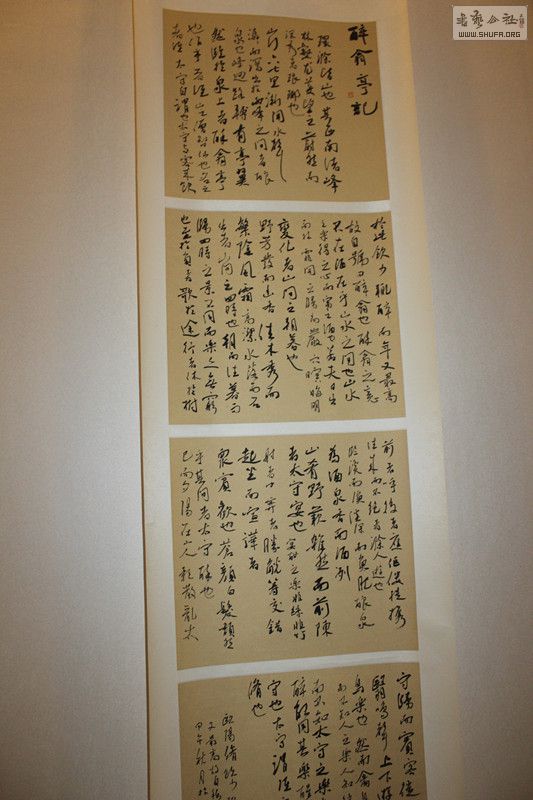 書藝公社
WWW.SHUFA.ORG
醉翁亭記
環滁皆山也其西南諸峰
林壑尤美望之蔚然而
深秀者琅琊也
山行六七里漸聞水聲
潺而瀉出於兩峰之間者釀
泉也峰迴路轉有亭翼
然臨於泉上者醉翁亭
也作亭者誰山之僧智仙也名之
者誰太守自謂也太守与客来飲
於此飲少輒醉而年又最高
故自號曰醉翁也醉翁之意
不在酒在乎山水之間也山水
之樂得之心而寓之酒也若夫日出
而林霏開歸而巖穴暝晦明
變化者山間之朝暮也
野芳發而幽香佳木秀而
繁陰風霜高潔水落而石
出者山間之四時也朝而往暮而
歸四時之景不同而樂亦無窮
也至於負者歌於途行者休於樹
前者呼後者應傴僂提攜
往来而不絕者滁人遊也
臨溪而漁溪深而魚肥釀泉
為酒泉香而酒冽
山肴野蔌雜然而前陳
者太守宴也宴酣之樂非絲非竹
射者中弈者勝觥籌交錯
起坐而諠譁者
眾賓歡也蒼顏白髮頹然
乎其間者太守醉也
已而夕陽在山人影散亂太
守歸而賓客從
翳鳴聲上下遊
鳥樂也然而禽鳥
而不知人之樂人知從
而不知太守之樂
醉能同其樂醒
守也太守謂誰
脩也
歐陽脩
甲午秋月